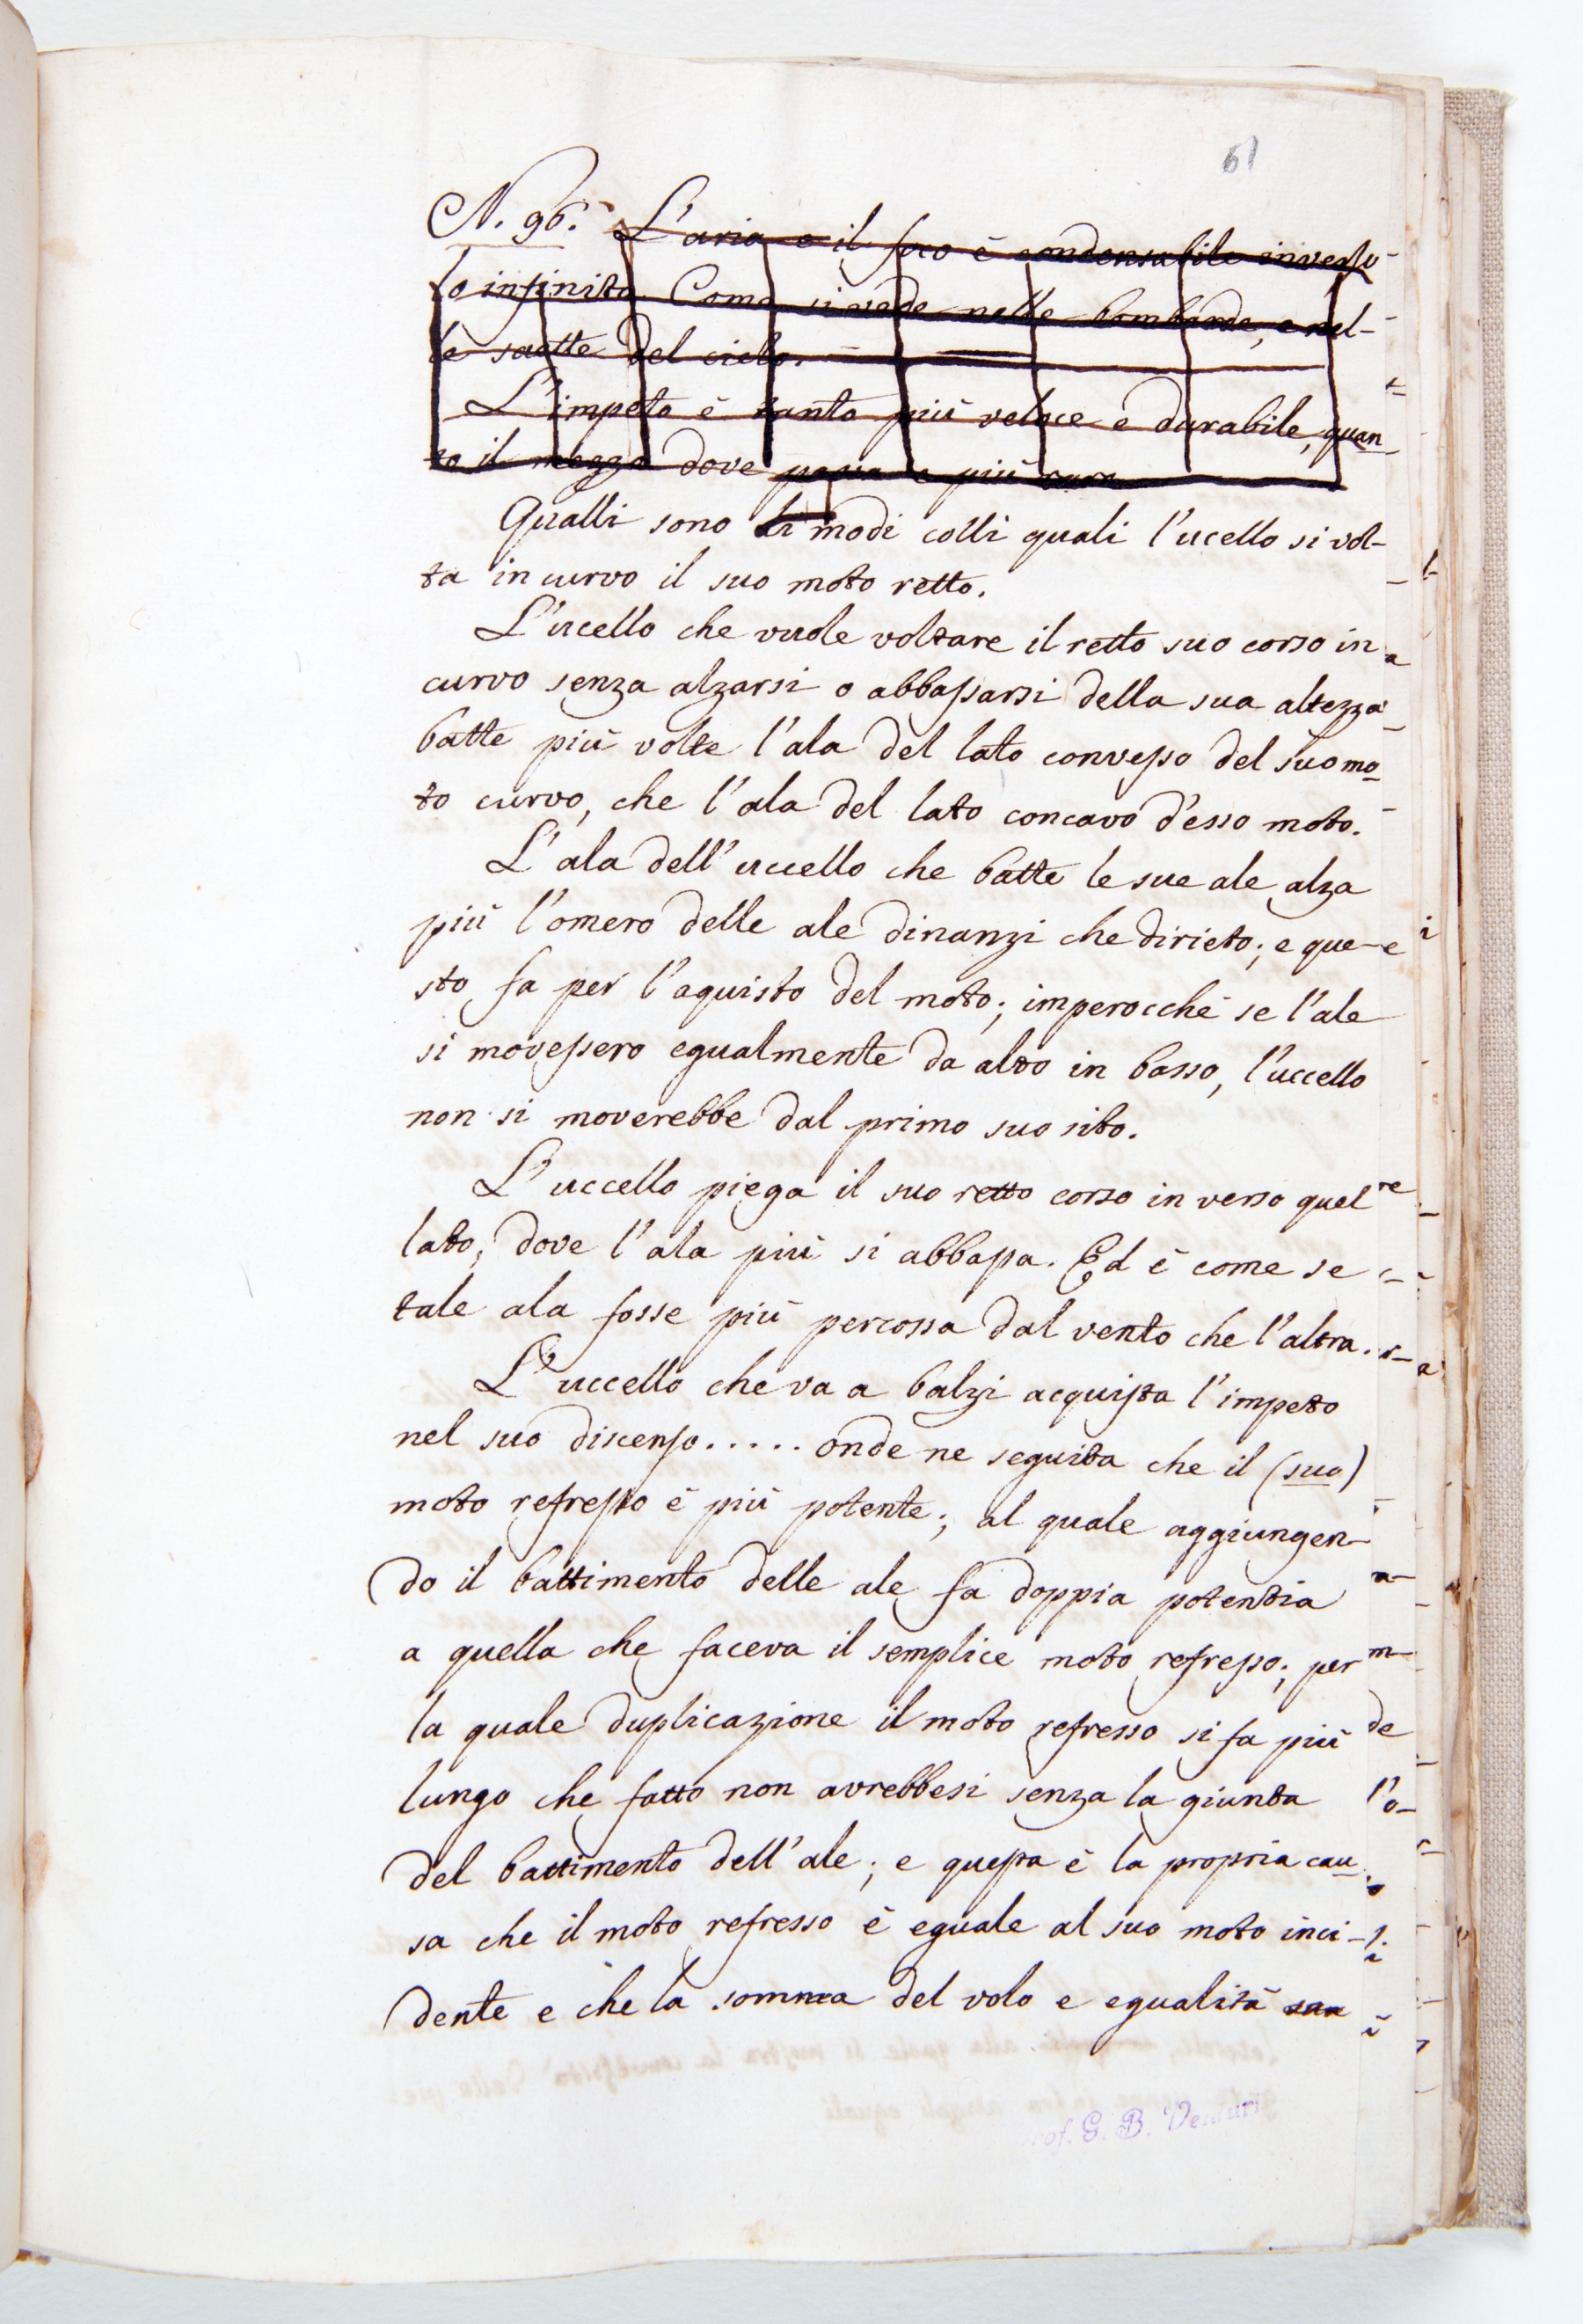 61
N. 96. L'aria e il foco è condensabile inverso
lo infinito. Come si vede nelle bombarde, e nel-
le saette del cielo.
L'impeto è tanto più veloce e durabile, quan
to il mezzo dove passa è più raro
Qualli sono li modi colli quali l'ucello si vol-
ta in curvo il suo moto retto.
L'ucello che vuole voltare il retto suo corso in
curvo senza alzarsi o abbassarsi della sua altezza
batte più volte l'ala del lato convesso del suo mo
to curvo, che l'ala del lato concavo d'esso moto.
L'ala dell'uccello che batte le sue ale alza
più l'omero delle ale dinanzi che dirieto; e que-
sto fa per l'aquisto del moto; imperocchè se l'ale
si movessero egualmente da alto in basso, l'uccello
non si moverebbe dal primo suo sito.
L'uccello piega il suo retto corso in verso quel
lato, dove l'ala più si abbassa. Ed è come se
tale ala fosse più percossa dal vento che l'altra.
L'uccello che va a balzi acquista l'impeto
nel suo discenso..... onde ne seguita che il (suo)
moto refresso è più potente; al quale aggiungen-
do il battimento delle ale fa doppia potentia
a quella che faceva il semplice moto refresso; per
la quale duplicazione il moto refresso si fa più
lungo che fatto non avrebbesi senza la giunta
del battimento dell'ale; e questa è la propria cau
sa che il moto refresso è eguale al suo moto inci-
dente e che la somma del volo e egualità
Prof. G. B. Venturi